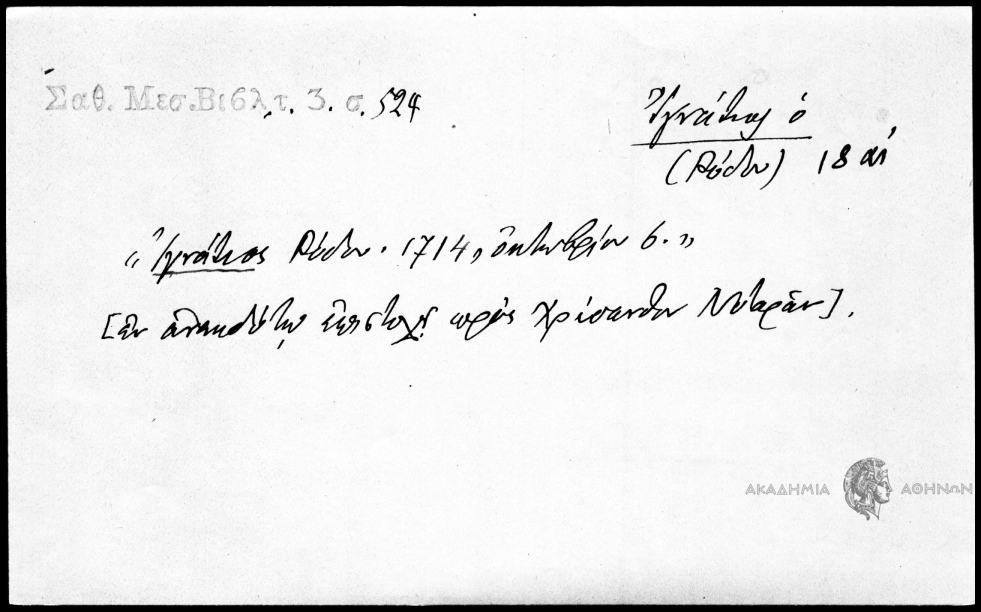 Σαθ. Μεσ. Βιβλ. τ. 3. σ. 524
Ἰγνάτιος ὁ
(Ρόδου) 18 αἰ
„Ἰγνάτιος Ρόδου. 1714, ὀκτωβρίου 6.„
[ἐν ἀνεκδότῳ ἐπιστολῇ πρὸς Χρύσανθον Νοταρᾶν].
ΑΚΑΔΗΜΙΑ ΑΘΗΝΩΝ